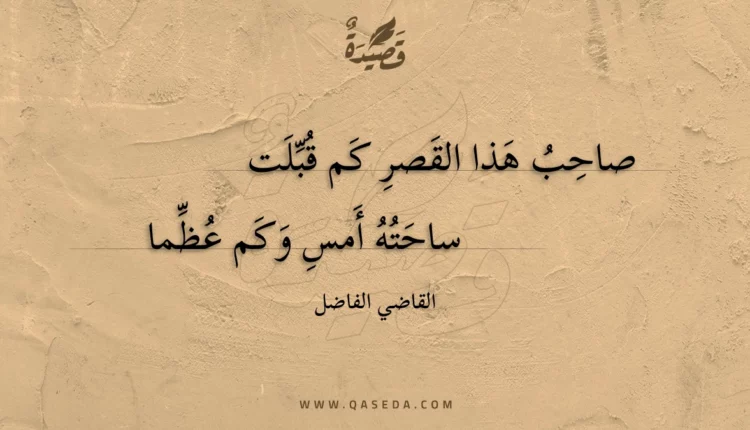 قَصِيْدَةٌ
صاحِبُ هَذا القَصرِ كَم قُبِّلَت
ساحَتُهُ أَمسِ وَكَم عُظِّما
القاضي الفاضل
WWW.QASEDA.COM